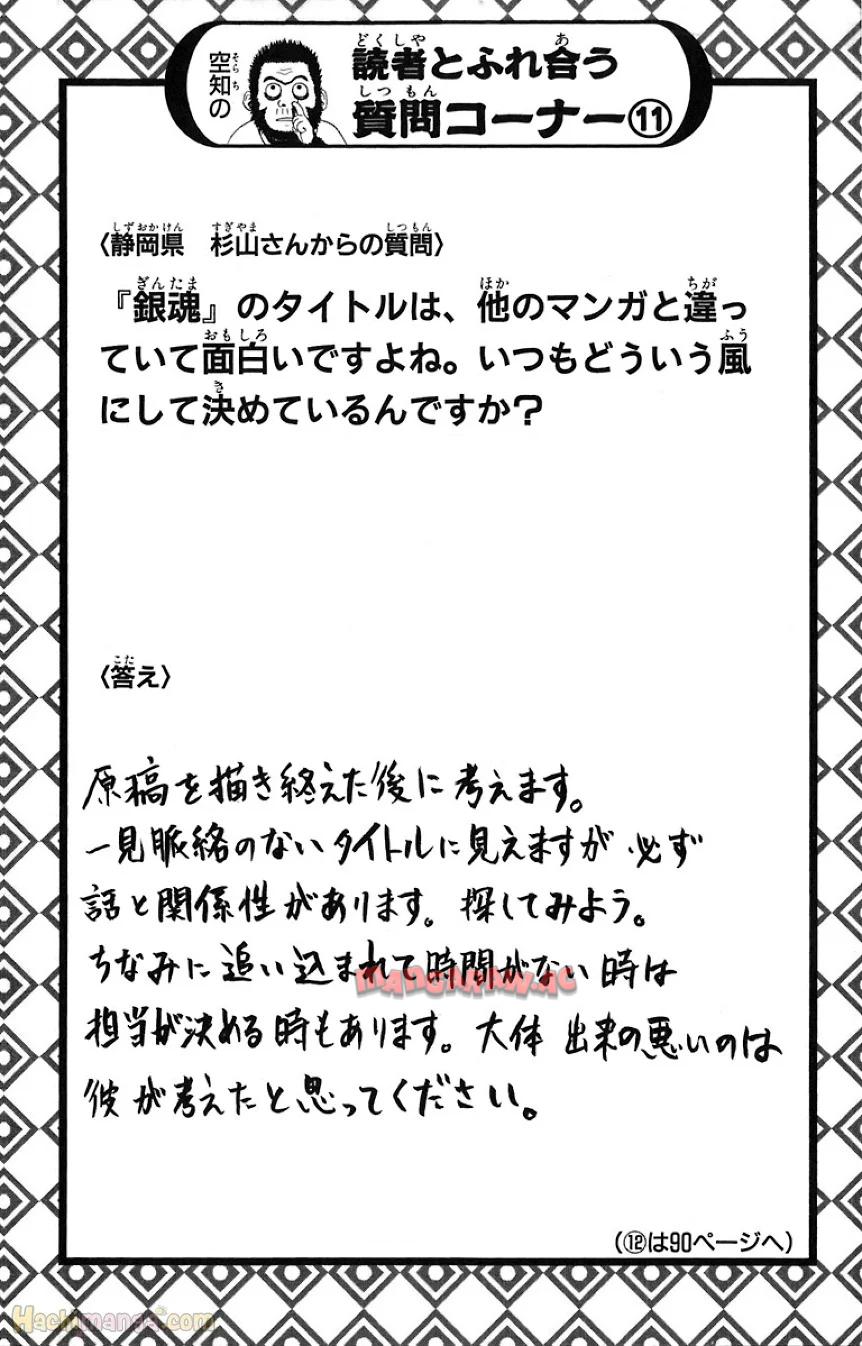 空知の
読者とふれ合う
質問コーナー⑪
〈静岡県　杉山さんからの質問〉
『銀魂』のタイトルは、他のマンガと違っ
ていて面白いですよね。いつもどういう風
にして決めているんですか？
〈答え〉
原稿を描き終えた後に考えます。
一見脈絡のないタイトルに見えますが 必ず
話と関係性があります。探してみよう。
ちなみに追い込まれて時間がない時は
担当が決める時もあります。大体 出来の悪いのは
彼が考えたと思ってください。
mangaraw.ac
（⑫は90ページへ）
Hachimanga.com